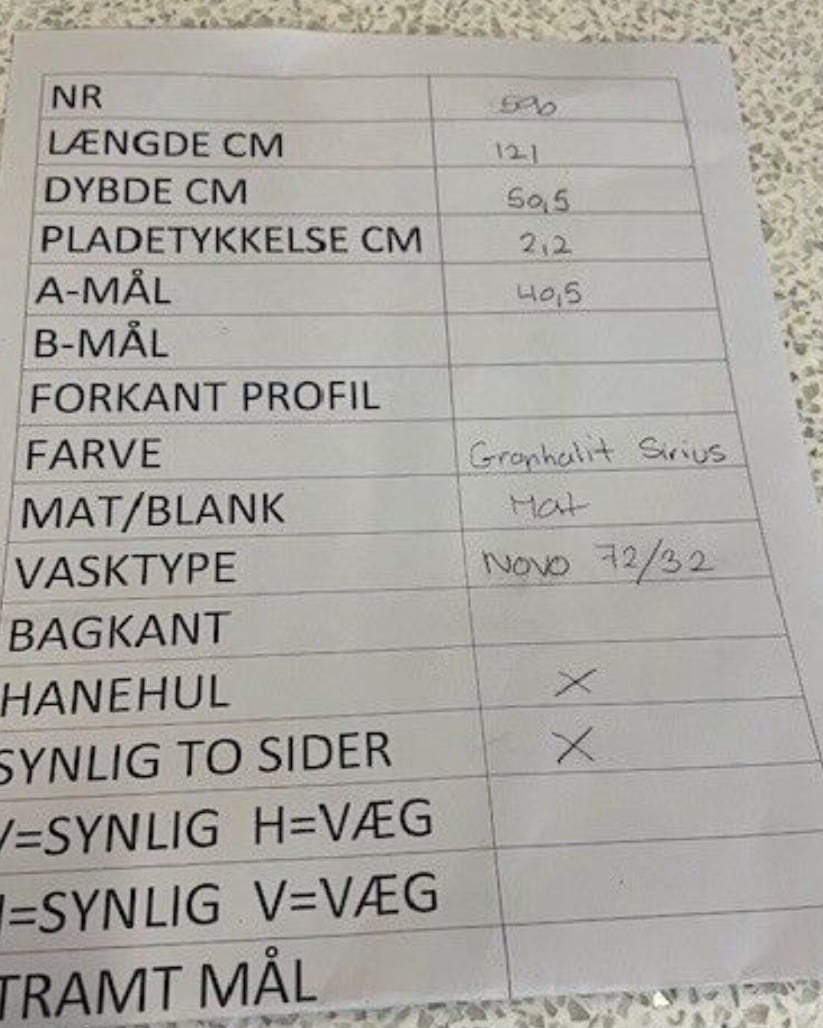 NR 590
LÆNGDE CM 121
DYBDE CM 50,5
PLADETYKKELSE CM 2,2
A-MÅL 40,5
B-MÅL
FORKANT PROFIL
FARVE Granhalit Sirius
MAT/BLANK Mat
VASKTYPE NOVO 72/32
BAGKANT
HANEHUL X
SYNLIG TO SIDER X
V=SYNLIG H=VÆG
=SYNLIG V=VÆG
TRAMT MÅL